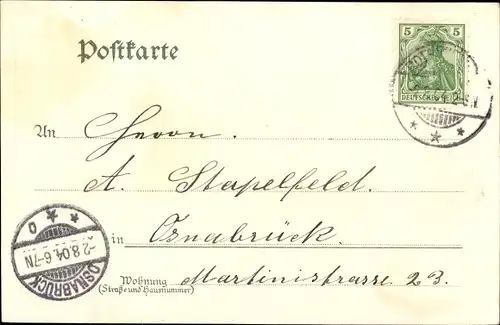 Postkarte
5 5
DEUTSCHES
An Herrn
A. Stapelfeld.
in Osnabrück.
Wohnung Martinistrasse 23.
(Straße und Hausnummer)
OSNABRÜCK
-2.8.04.6-7N